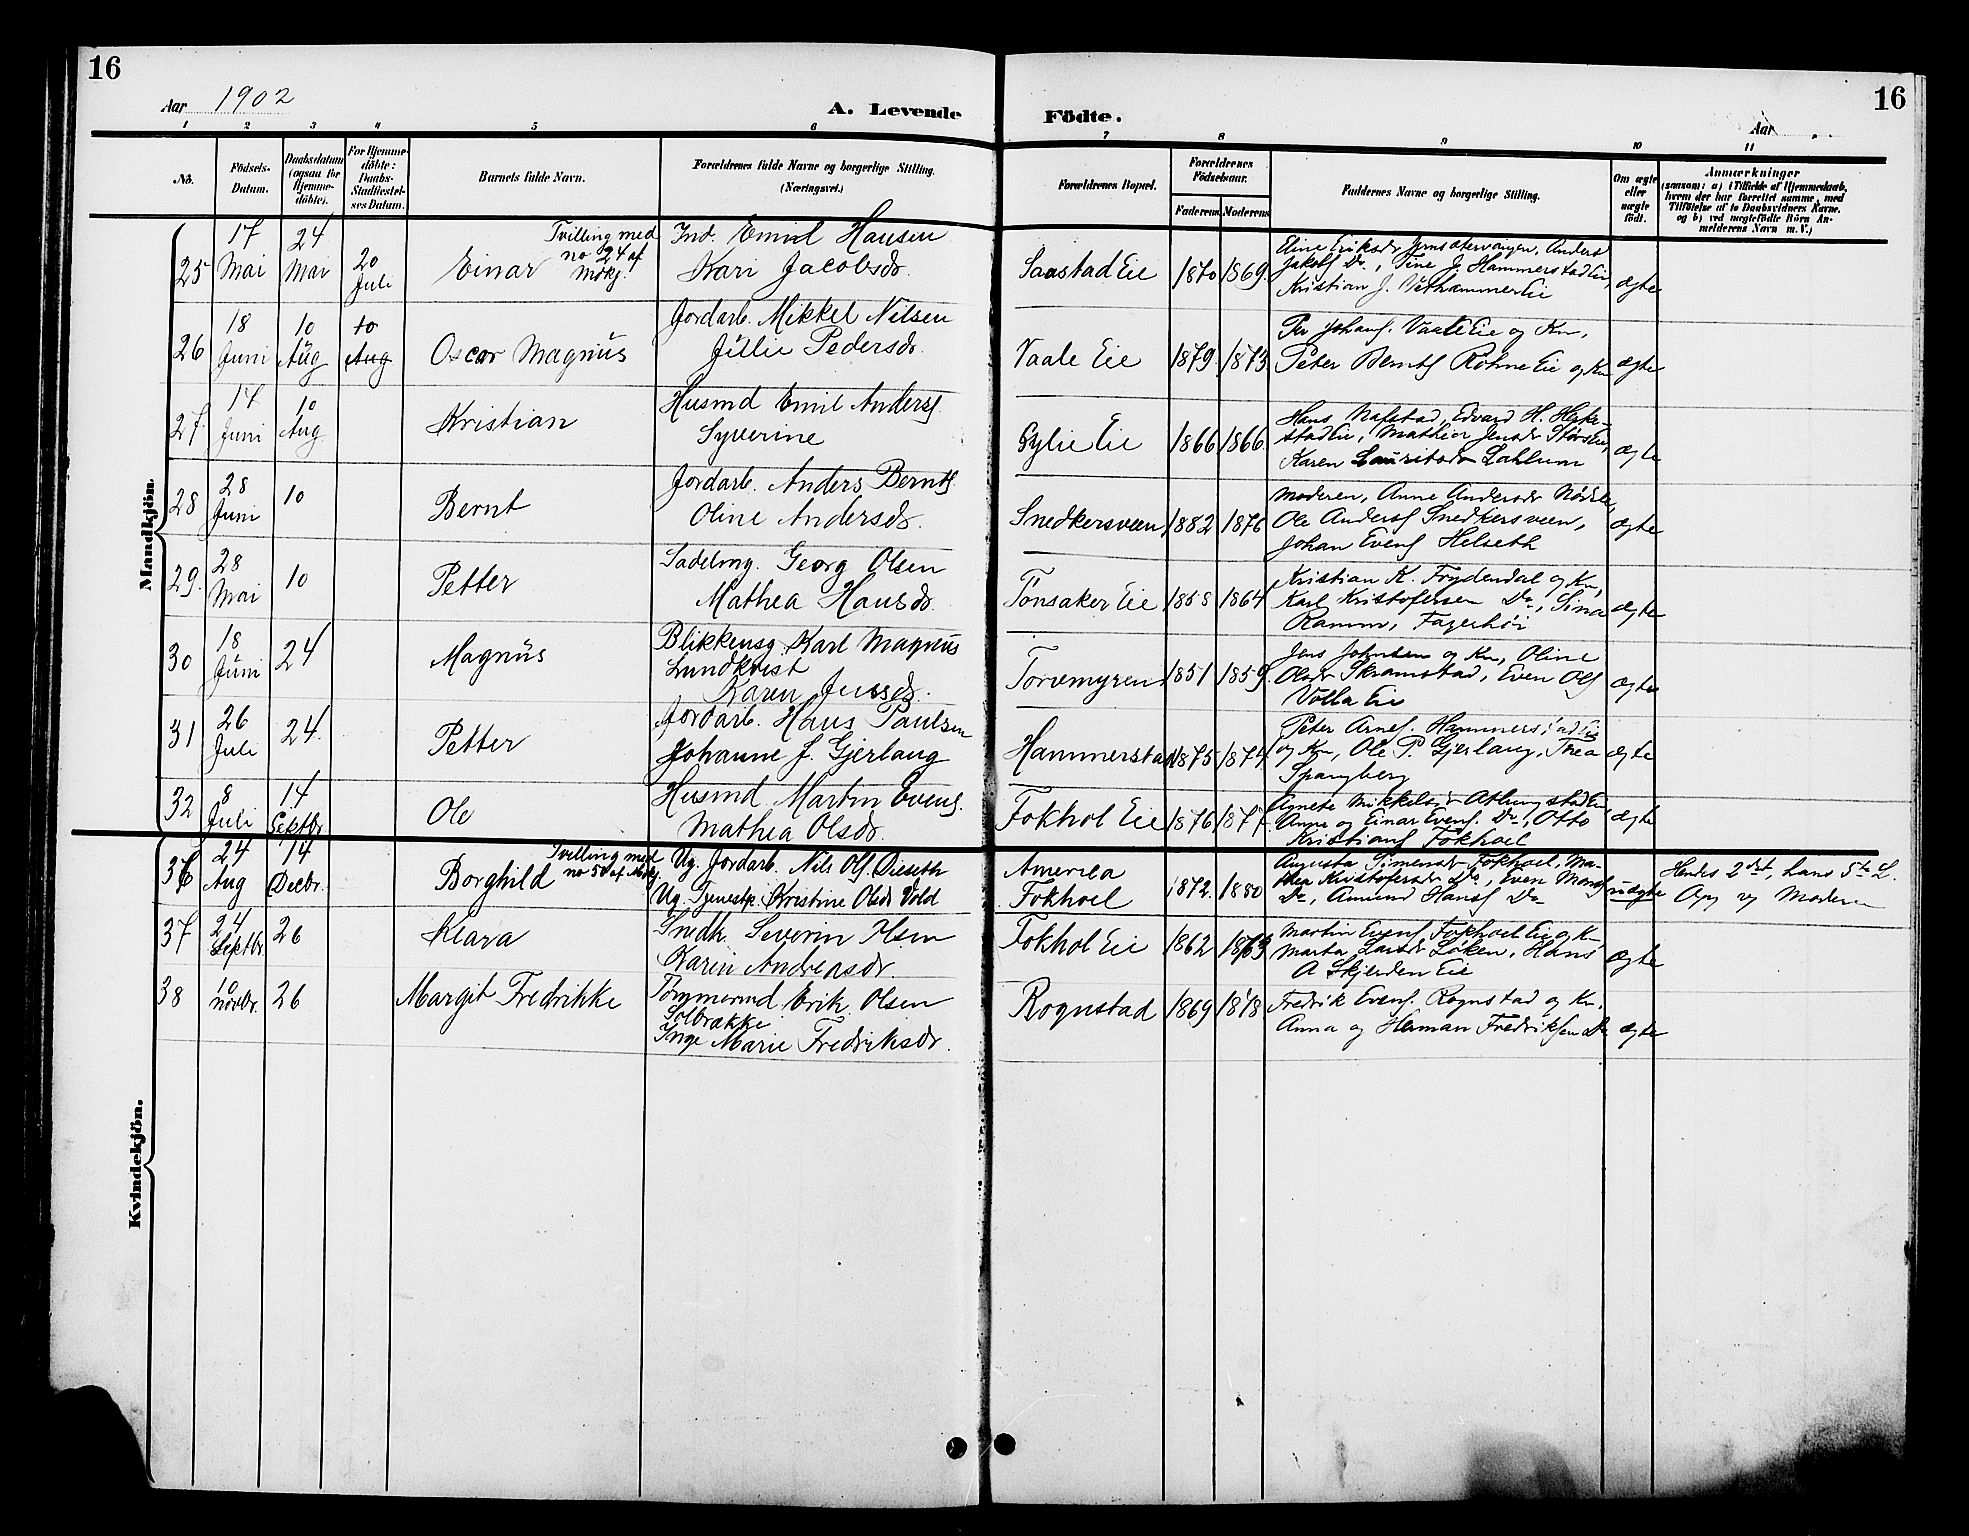 16
16
Aar 1902
A. Levende Födte.
Aar
1 2 3 4 5 6 7 8 9 10 11
No.
Födsels-
Datum.
Daabsdatum
(ogsaa for
Hjemme-
döbte).
For Hjemme-
döbte:
Daabs-
Stadfæstel-
ses Datum.
Barnets fulde Navn.
Forældrenes fulde Navne og borgerlige Stilling.
(Næringsvei.)
Forældrenes Bopæl.
Forældrenes
Födselsaar.
Faderens Moderens
Faddernes Navne og borgerlige Stilling.
Om ægte
eller
uægte
födt.
Anmærkninger
(saasom: a) i Tilfælde af Hjemmedaab,
hvem der har forrettet samme, med
Tilföielse af to Daabsvidners Navne.
og b) ved uægtefödte Börn An-
melderens Navn m. V.)
Mandkjön.
25
17
Mai
24
Mai
20
Juli
Einar
Tvilling med
no 24 af
Mdkj.
Ind. Emil Hansen
Kari Jacobsdr.
Saastad Eie
1870 1869.
Eline Eriksdr , Anders
Jakobs Do, Tine J. Hammerstad Eie,
Kristian J. Vethammer Eie
ægte
26
18
Juni
10
Aug
10
Aug
Oscar Magnus
Jordarb. Mikkel Nilsen
Jullie Pedersdr.
Vaale Eie
1879 1873
Per Johans. Vaale Eie og Kn,
Peter Bernts Rohne Eie og Kn
ægte
27.
14
Juni
10
Aug
Kristian
Husmd Emil Anders.
Syverine
Gylie Eie
1866 1866.
Hans Nafstad, Edvard H. Hyke-
stad Eie, Mathea Jensdr Störs Eie,
Karen Lauritsdr Lahlum
ægte
28
28
Juni
10
Bernt
Jordarb. Anders Bernts.
Oline Andersdr.
Snedkersveen
1882 1876
Moderen, Anne Andersdr
Ole Anders Snedkersveen,
Johan Evens Helseth
ægte
29.
28
Mai
10
Petter
Sadelmg. Georg Olsen
Mathea Hansdr.
Tönsaker Eie
1858 1864
Kristian K. Frydendal og Kn,
Karl Kristofersen Do, Sina
Ramm, Fagerhöi
ægte
30
18
Juni
24
Magnus
Blikkensg. Karl Magnus
Lundkvist
Karen Jensdr.
Torvmyren
1851 1859
Jens Johnsen og Kn, Oline
Olsdr Skramstad, Even Ols
Volla Eie
ægte
31
26
Juli
24
Petter
Jordarb. Hans Paulsen
Johanne J. Gjerlaug
Hammerstad
1875 1874
Peter Arnes. Hammerstad Eie
og Kn, Ole P. Gjerlaug, Thea
Spangberg
ægte
32
8
Juli
14
Septbr
Ole
Husmd Martin Evens.
Mathea Olsdr.
Fokhol Eie
1876 1877.
Agnete Mikkelsdr Athungstad Eie,
Anne og Einar Evens. Do, Otto
Kristians Fokhoel
ægte
Kvindekjön.
36
24
Aug
14
Decbr.
Borghild
Tvilling med
no 50 af Mdkj.
Ug. Jordarb. Nils Ols. Dieseth
Ug. Tjenestp. Kristine Olsdr Vold
America
Fokhoel
1872. 1880
Augusta Simensdr Fokhoel, Ma-
thea Kristofersdr Do, Even Monds
Do, Amund Hans Do
uægte
Hendes 2det, hans 5te L.
Opg v Moderen
37
24
Septbr
26
Klara
Snedk. Severin Olsen
Karin Andreasdr.
Fokhol Eie
1862 1863
Martin Evens Fokhoel Eie og Kn,
Marta Larsdr Löken, Hans
A Skjerden Eie
ægte
38
10
Novbr.
26
Margit Fredrikke
Tömmermd Erik Olsen
Solbrække
Inge Marie Fredriksdr.
Rognstad
1869 1878
Fredrik Evens. Rognstad og Kn.
Anna og Herman Fredriksen Do
ægte